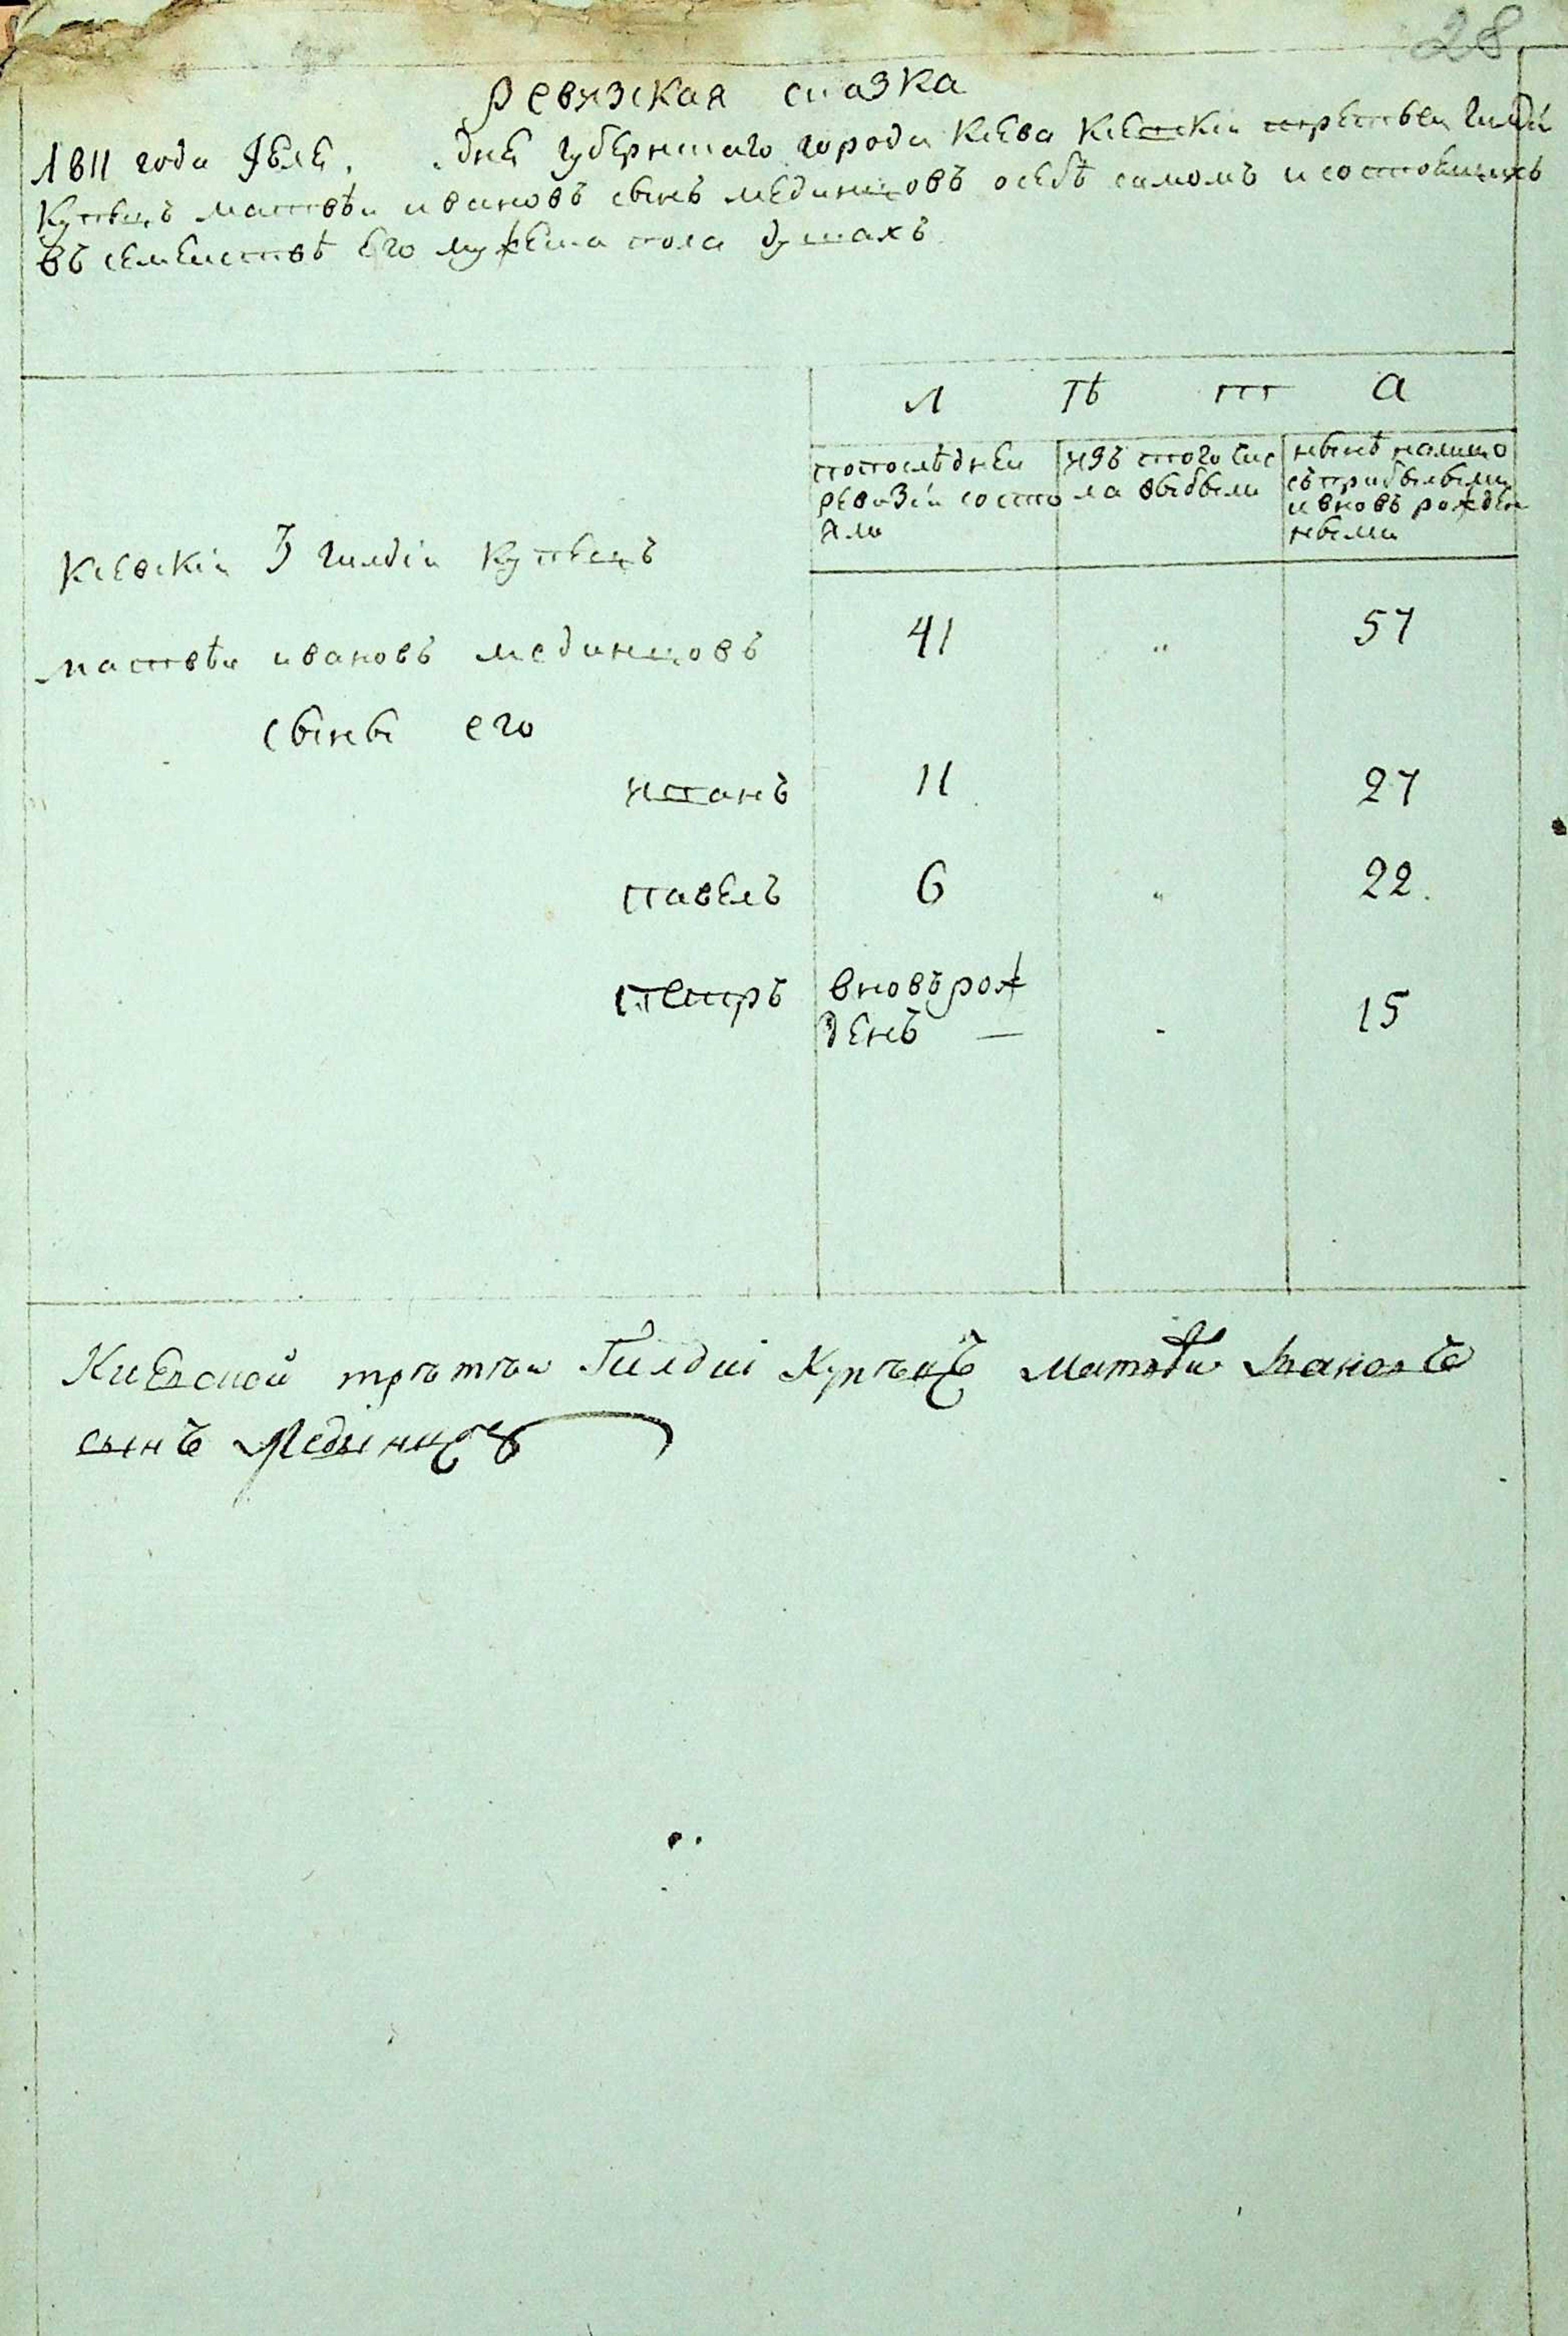 28
Ревизская сказка
1811 года Июля . дня губерншаго города Киева Киевскии третьеи гилдіи
Купецъ матвѣи ивановъ сынъ мединцовъ осебѣ самомъ и состоящихъ
въ семеиствѣ его мужеска пола душахъ
Л ѣ т а
попослѣднеи
ревизіи состо
яли
изъ того чис
ла выбыли
нынѣ налицо
съ прибылыми
ивновь рожден
ными
Киевскіи 3 гилдіи Купецъ
матвѣи ивановъ мединцовъ 41 " 57
сыны его
иванъ 11 27
павелъ 6 " 22.
петръ вновърож
денъ — - 15
Киевской третеи Гилдиі Купецъ Матвѣи Ивановъ
сынъ Медінцов